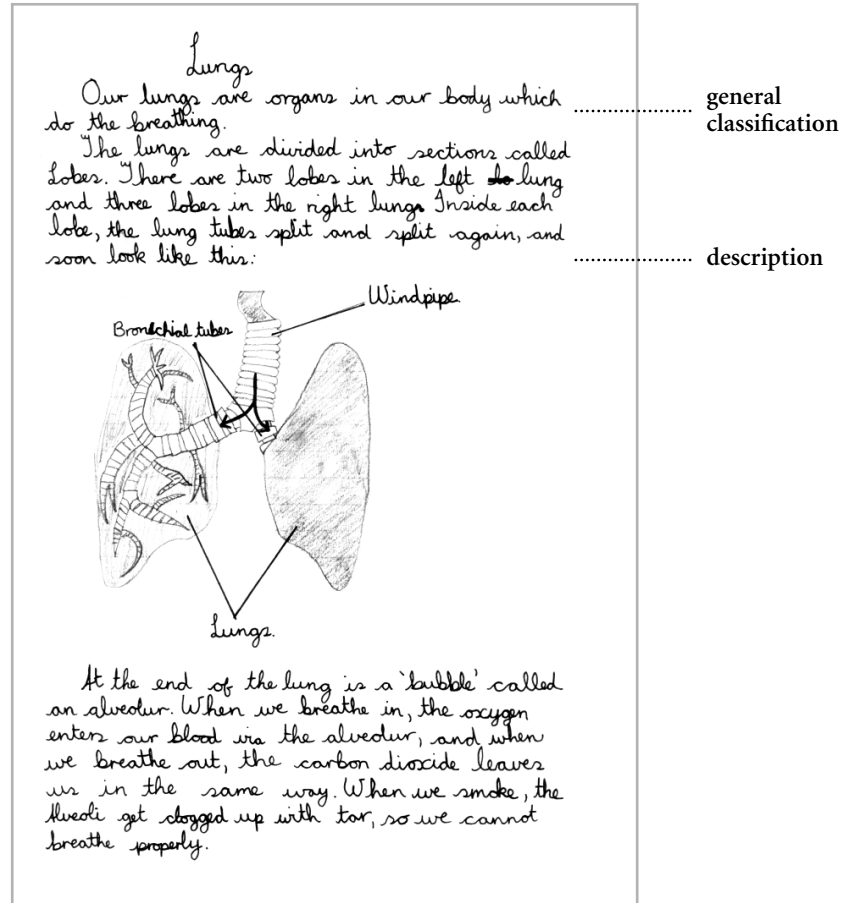 Lungs
Our lungs are organs in our body which
do the breathing.
general
classification
The lungs are divided into sections called
Lobes. There are two lobes in the left lung
and three lobes in the right lung. Inside each
lobe, the lung tubes split and split again, and
soon look like this:
description
Windpipe.
Bronchial tubes
Lungs.
At the end of the lung is a 'bubble' called
an alveolur. When we breathe in, the oxygen
enters our blood via the alveolur, and when
we breathe out, the carbon dioxide leaves
us in the same way. When we smoke, the
Alveoli get clogged up with tar, so we cannot
breathe properly.